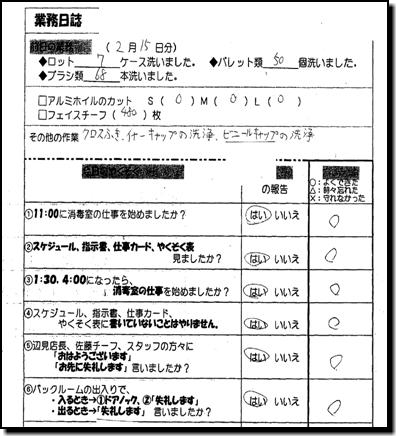 業務日誌
(2月15日分)
◆ロット 7 ケース洗いました。 ◆パレット類 50 個洗いました。
◆ブラシ類 68 本洗いました。
□アルミホイルのカット S(0)M(0)L(0)
□フェイスチーフ(480)枚
その他の作業 クロスふき、イヤーキャップの洗浄、ビニールキャップの洗浄
の報告
○:よくできた
△:時々忘れた
×:守れなかった
①11:00に消毒室の仕事を始めましたか? はい いいえ ○
②スケジュール、指示書、仕事カード、やくそく表
見ましたか? はい いいえ ○
③1:30、4:00になったら、
消毒室の仕事を始めましたか? はい いいえ ○
④スケジュール、指示書、仕事カード、
やくそく表に書いていないことはやりません。 はい いいえ ○
⑤辺見店長、佐藤チーフ、スタッフの方々に
「おはようございます」
「お先に失礼します」言いましたか? はい いいえ ○
⑥バックルームの出入りで、
・入るとき→①ドアノック、②「失礼します」
・出るとき→「失礼します」 言いましたか? はい いいえ ○